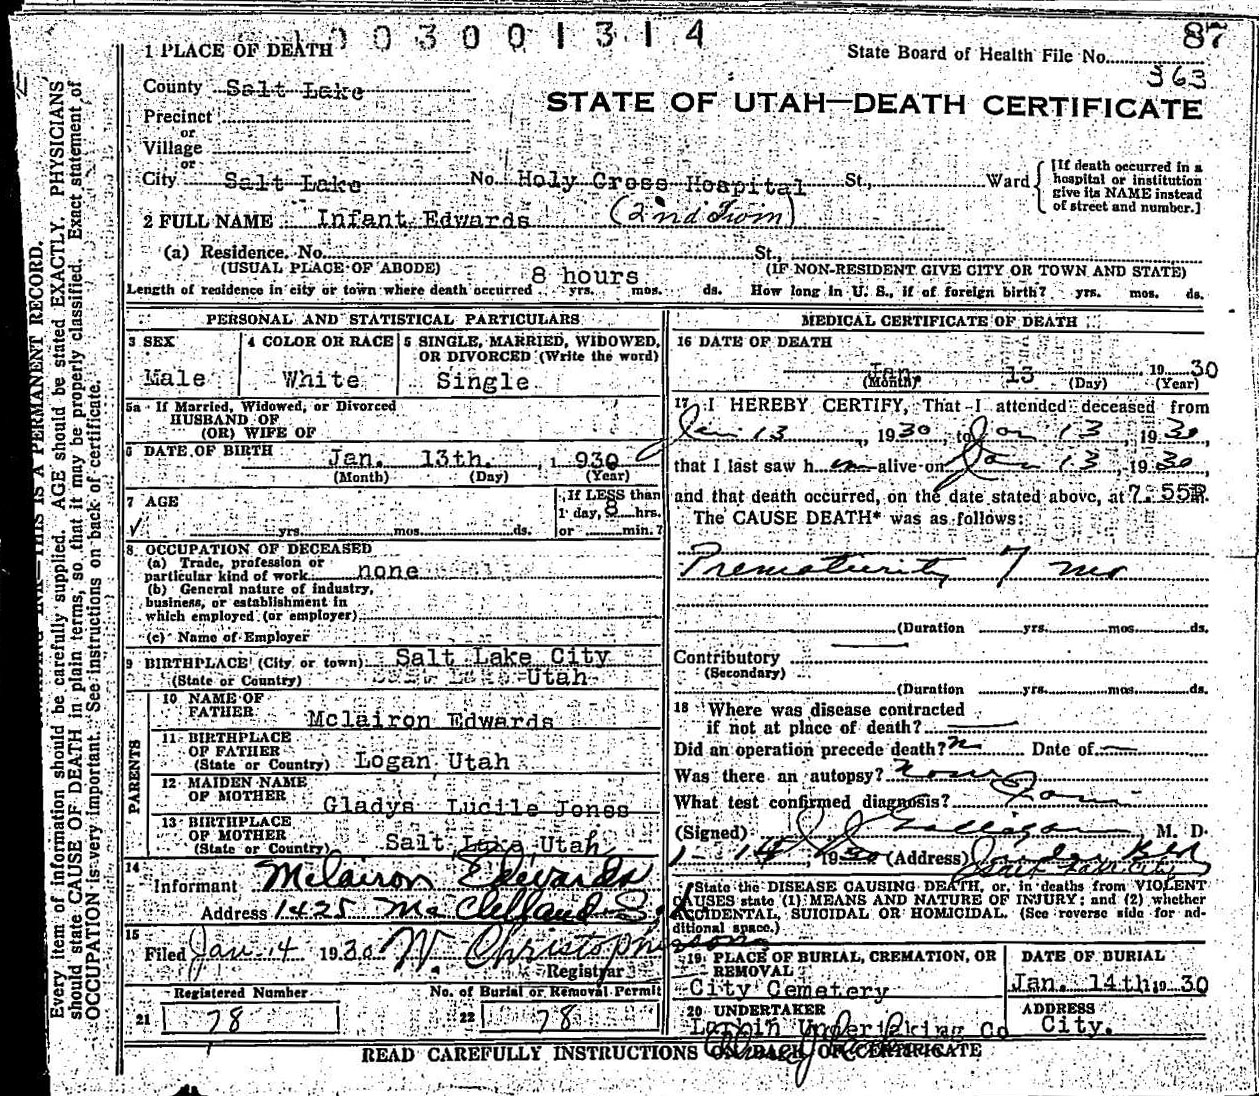 003001314
87
1 PLACE OF DEATH
State Board of Health File No.
363
County Salt Lake
STATE OF UTAH—DEATH CERTIFICATE
Precinct
or
Village
or
City Salt Lake No. Holy Cross Hospital St., Ward
[If death occurred in a
hospital or institution
give its NAME instead
of street and number.]
2 FULL NAME Infant Edwards (2nd Twin)
(a) Residence. No. St.,
(USUAL PLACE OF ABODE) (IF NON-RESIDENT GIVE CITY OR TOWN AND STATE)
8 hours
Length of residence in city or town where death occurred yrs. mos. ds. How long in U. S., if of foreign birth? yrs. mos. ds.
PERSONAL AND STATISTICAL PARTICULARS
3 SEX
Male
4 COLOR OR RACE
White
5 SINGLE, MARRIED, WIDOWED,
OR DIVORCED (Write the word)
Single
5a If Married, Widowed, or Divorced
HUSBAND OF
(OR) WIFE OF
6 DATE OF BIRTH Jan. 13th. , 1 930
(Month) (Day) (Year)
7 AGE
yrs. mos. ds.
If LESS than
1 day, 8 hrs.
or min.?
8. OCCUPATION OF DECEASED
(a) Trade, profession or
particular kind of work none
(b) General nature of industry,
business, or establishment in
which employed (or employer)
(c) Name of Employer
9 BIRTHPLACE (City or town) Salt Lake City
(State or Country) Utah
PARENTS
10 NAME OF
FATHER Mclairon Edwards
11 BIRTHPLACE
OF FATHER
(State or Country) Logan Utah
12 MAIDEN NAME
OF MOTHER Gladys Lucile Jones
13 BIRTHPLACE
OF MOTHER
(State or Country) Salt Lake, Utah
14
Informant Mclairon Edwards
Address 1425 McClelland S
15
Filed Jan. 14 1930 W. Christopherson
Registrar
Registered Number
21 78
No. of Burial or Removal Permit
22 78
MEDICAL CERTIFICATE OF DEATH
16 DATE OF DEATH
Jan. 13 , 19 30
(Month) (Day) (Year)
17 I HEREBY CERTIFY, That I attended deceased from
Jan 13 , 1930, to Jan 13 , 1930,
that I last saw h im alive on Jan 13 , 1930
and that death occurred, on the date stated above, at 7.55P.
The CAUSE DEATH* was as follows:
Prematurity 7 mo
(Duration yrs. mos. ds.
Contributory
(Secondary)
(Duration yrs. mos. ds.
18 Where was disease contracted
if not at place of death?
Did an operation precede death? n Date of
Was there an autopsy? none
What test confirmed diagnosis?
(Signed) , M. D.
1-14, 1930 (Address)
Salt Lake City
*State the DISEASE CAUSING DEATH, or, in deaths from VIOLENT
CAUSES state (1) MEANS AND NATURE OF INJURY; and (2) whether
ACCIDENTAL, SUICIDAL OR HOMICIDAL. (See reverse side for ad-
ditional space.)
19 PLACE OF BURIAL, CREMATION, OR
REMOVAL
City Cemetery
DATE OF BURIAL
Jan. 14th 19 30
20 UNDERTAKER
Larkin Undertaking Co
ADDRESS
City.
READ CAREFULLY INSTRUCTIONS ON BACK OF CERTIFICATE
THIS IS A PERMANENT RECORD.
Every item of information should be carefully supplied. AGE should be stated EXACTLY. PHYSICIANS
should state CAUSE OF DEATH in plain terms, so that it may be properly classified. Exact statement of
OCCUPATION is very important. See instructions on back of certificate.